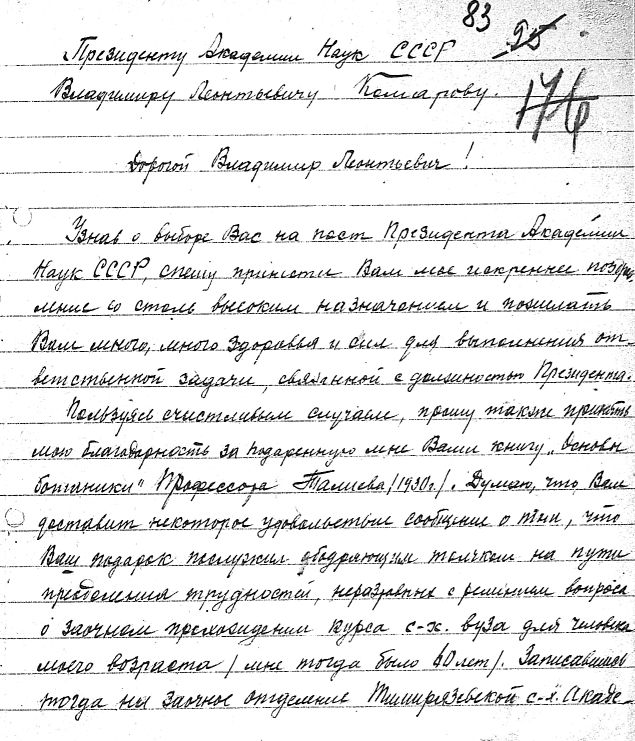 83 95
Президенту Академии Наук СССР
176
Владимиру Леонтьевичу Комарову.
Дорогой Владимир Леонтьевич!
Узнав о выборе Вас на пост Президента Академии
Наук СССР, спешу принести Вам мое искреннее поздрав
ление со столь высоким назначением и пожелать
Вам много, много здоровья и сил для выполнения от-
ветственной задачи, связанной с должностью Президента.
Пользуясь счастливым случаем, прошу также принять
мою благодарность за подаренную мне Вами книгу „Основы
ботаники" Профессора Талиева /1930г./. Думаю, что Вам
доставит некоторое удовольствие сообщение о том, что
Ваш подарок послужил ободряющим толчком на пути
преодоления трудностей, неразрывных с решением вопроса
о заочном прохождении курса с-х. вуза для человека
моего возраста /мне тогда было 60 лет/. Записавшись
тогда на заочное отделение Тимирязевской с-х. Акаде-